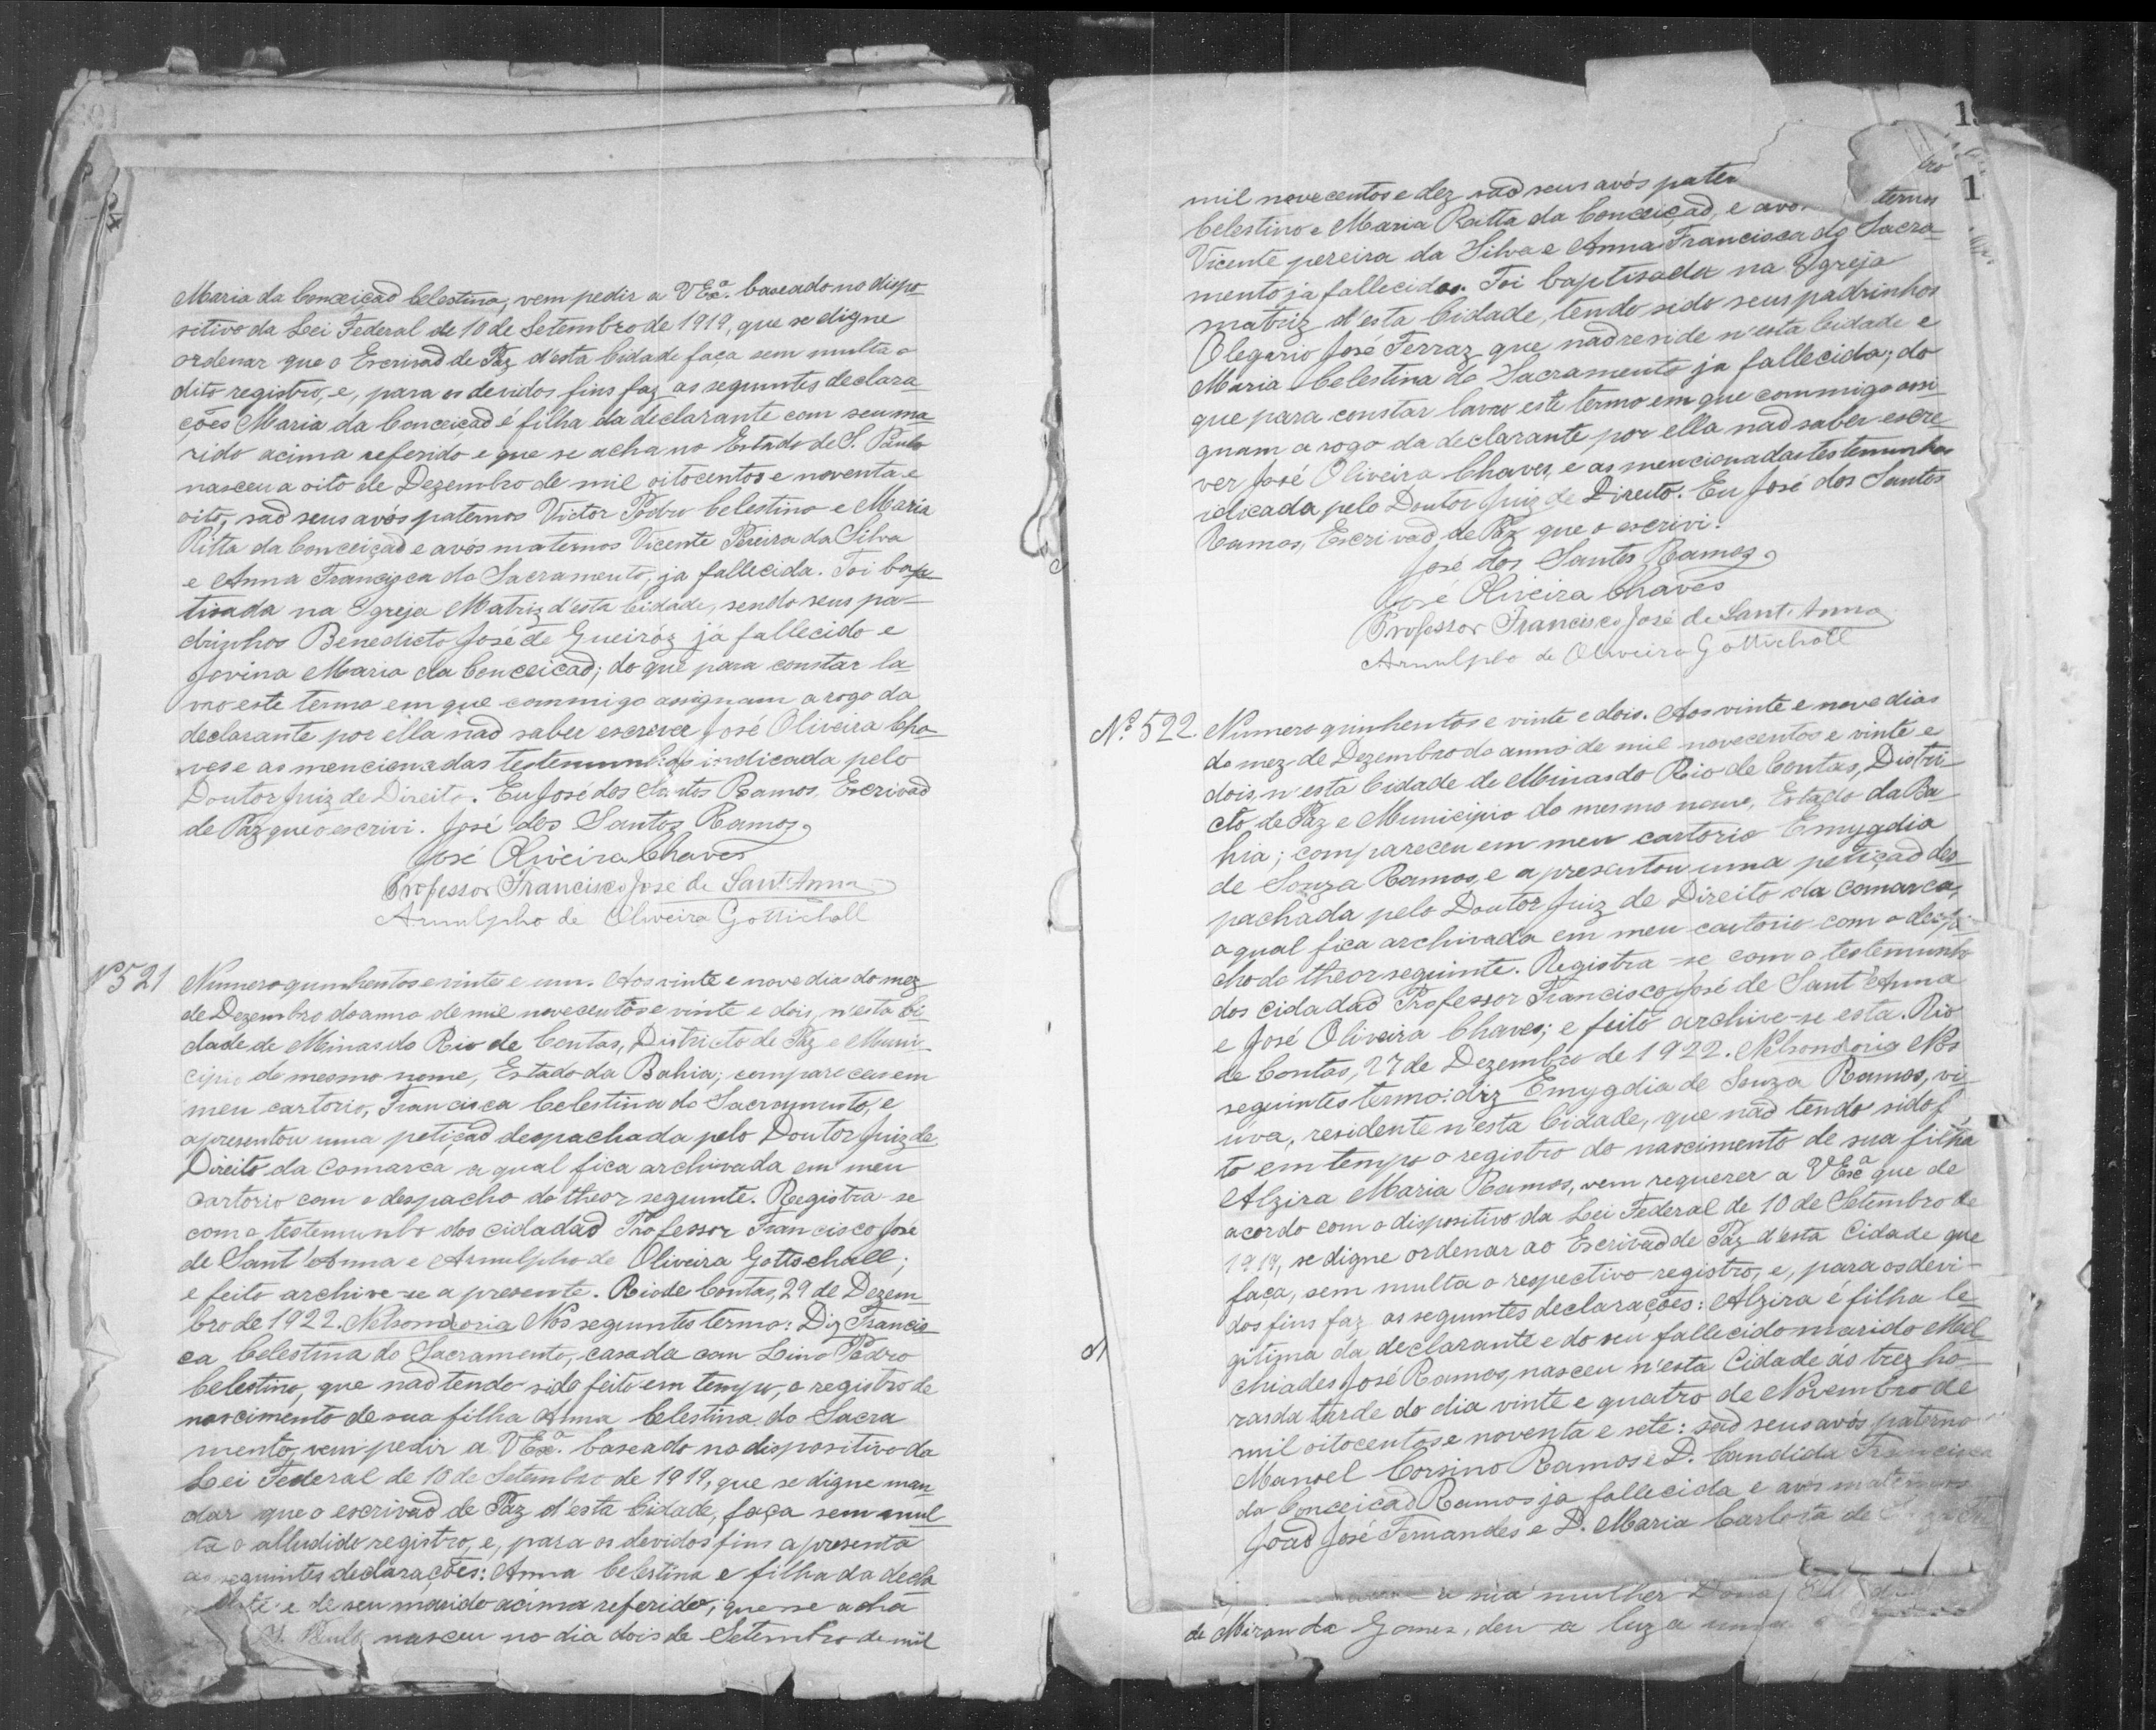 Maria da Conceiçaõ Celestina, vem pedir a VExª. baseado no dispo-
sitivo da Lei Federal de 10 de Setembro de 1919, que se digne
ordenar que o Escrivaõ de Paz d'esta Cidade faça sem multa o
dito registro, e, para os devidos fins faz as seguintes declara-
ções Maria da Conceiçaõ é filha da declarante com seu ma-
rido acima referido e que se acha no Estado de S. Paulo
nasceu a oito de Dezembro de mil oitocentos e noventa e
oito, saõ seus avós paternos Victor Pedro Celestino e Maria
Ritta da Conceiçaõ e avós maternos Vicente Pereira da Silva
e Anna Francisca do Sacramento, ja fallecida. Foi bap-
tisada na Igreja Matriz d'esta Cidade, sendo seus pa-
drinhos Benedicto José de Queiróz já fallecido e
Jovina Maria da Conceicaõ; do que para constar la-
vro este termo em que commigo assignam a rogo da
declarante por ella naõ saber escrever José Oliveira Cha-
ves e as mencionadas testemunhas indicada pelo
Doutor Juiz de Direito. Eu José dos Santos Ramos, Escrivaõ
de Paz que o escrivi. José dos Santos Ramos
José Oliveira Chaves
Professor Francisco José de Sant'Anna
Arnulpho de Oliveira Gottschall
Nº 521 Numero quinhentos e vinte e um. Aos vinte e nove dias do mez
de Dezembro do anno de mil novecentos e vinte e dois, n'esta Ci-
dade de Minas do Rio de Contas, Districto de Paz e Muni-
cipio do mesmo nome, Estado da Bahia; compareceu em
meu cartorio, Francisca Celestina do Sacramento, e
apresentou uma petiçaõ despachada pelo Doutor Juiz de
Direito da Comarca a qual fica archivada em meu
Cartorio com o despacho do theor seguinte. Registra-se
com o testemunho dos cidadaõ Professor Francisco José
de Sant'Anna e Arnulpho de Oliveira Gottschall;
e feito archive-se a presente. Rio de Contas, 29 de Dezem-
bro de 1922. Nelson Doria Nos seguintes termo: Diz Francis-
ca Celestina do Sacramento, casada com Lino Pedro
Celestino, que naõ tendo sido feito em tempo, o registro de
nascimento de sua filha Anna Celestina do Sacra
mento, vem pedir a VExª. baseado no dispositivo da
Lei Federal de 10 de Setembro de 1919, que se digne man-
dar que o escrivaõ de Paz d'esta Cidade, faça sem mul-
ta o alludido registro, e, para os devidos fins apresenta
as seguintes declarações: Anna Celestina e filha da decla
e de seu marido acima referido; que se acha
S. Paulo nasceu no dia dois de Setembro de mil
mil novecentos e dez saõ seus avós pater
Celestino e Maria Ritta da Conceiçaõ, e avo ternos
Vicente pereira da Silva e Anna Francisca do Sacra-
mento ja fallecidos. Foi baptisada na Igreja
matriz d'esta Cidade, tendo sido seus padrinhos
Olegario José Ferraz que naõ reside n'esta Cidade e
Maria Celestina do Sacramento ja fallecida; do
que para constar lavro este termo em que commigo assi-
gnam a rogo da declarante por ella naõ saber escre-
ver José Oliveira Chaves, e as mencionadas testemunhas
indicada pelo Doutor Juiz de Direito. Eu José dos Santos
Ramos, Escrivaõ de Paz que o escrivi.
José dos Santos Ramos
José Oliveira Chaves
Professor Francisco José de Sant'Anna
Arnulpho de Oliveira Gottschall
Nº 522. Numero quinhentos e vinte e dois. Aos vinte e nove dias
do mez de Dezembro do anno de mil novecentos e vinte e
dois, n'esta Cidade de Minas do Rio de Contas, Distri-
cto de Paz e Municipio do mesmo nome, Estado da Ba-
hia; compareceu em meu cartorio Emygdia
de Souza Ramos, e apresentou uma petiçaõ des-
pachada pelo Doutor Juiz de Direito da Comarca,
a qual fica archivada em meu cartorio com o despa-
cho do theor seguinte. Registra-se com o testemunho
dos cidadaõ Professor Francisco José de Sant'Anna
e José Oliveira Chaves; e feito archive-se esta. Rio
de Contas, 27 de Dezembro de 1922. Nelson Doria Nos
seguintes termo: diz Emygdia de Souza Ramos, vi-
uva, residente n'esta Cidade, que naõ tendo sido f
to em tempo o registro do nascimento de sua filha
Alzira Maria Ramos, vem requerer a VExª que de
acordo com o dispositivo da Lei Federal de 10 de Setembro de
1919, se digne ordenar ao Escrivaõ de Paz d'esta Cidade que
faça, sem multa o respectivo registro, e, para os devi-
dos fins faz as seguintes declarações: Alzira é filha le-
gitima da declarante e do seu fallecido marido Mel-
chiades José Ramos, nasceu n'esta Cidade ás trez ho-
ras da tarde do dia vinte e quatro de Novembro de
mil oitocentos e noventa e sete: saõ seus avós paterno
Manoel Corsino Ramos e D. Candida Francisca
da Conceicaõ Ramos ja fallecida e avós maternos
Joaõ José Fernandes e D. Maria Carlota de
a sua mulher Dona
de Miranda Gomes, deu a luz a uma